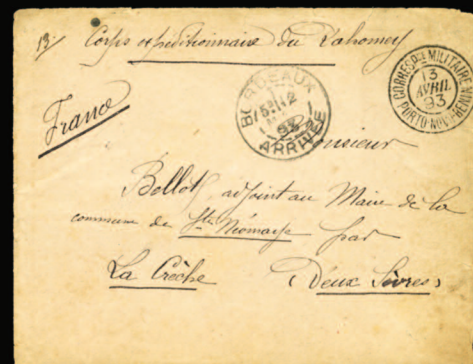 Corps expéditionnaire du Dahomey
CORRESP. MILITAIRE
13
AVRIL
93
PORTO-NOVO
BORDEAUX
93
ARRIVÉE
France
Monsieur
Bellot, adjoint au Maire de la
commune de Ste Néomaye par
La Crèche (Deux Sèvres)